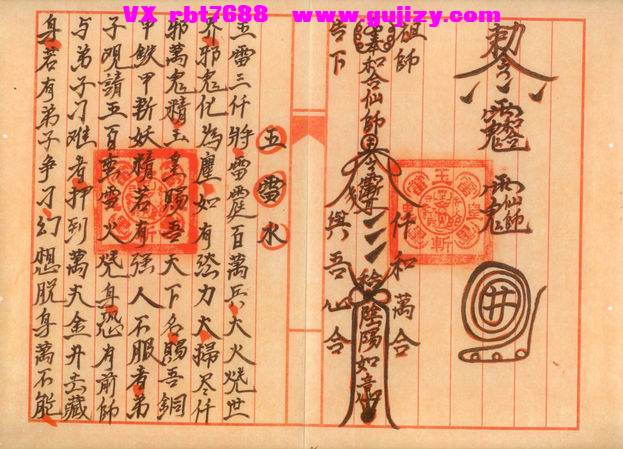 VX rbt7688 www.gujizy.com
勅令
仟和萬合
奉和合仙師
陰陽如意
祖師
與吾心合
令下
五雷水
五雷三仟將雷霆百萬兵大火燒世
介邪鬼化為塵如有力大掃尽仟
邪萬鬼精玉皇賜吾天下名賜吾銅
甲鉄甲斬妖精若有强人不服者弟
子請五百蛮雷火燒身恐有前師
与弟子刁难者押到萬丈金井去藏
身若有弟子争刁幻想脫身萬不能